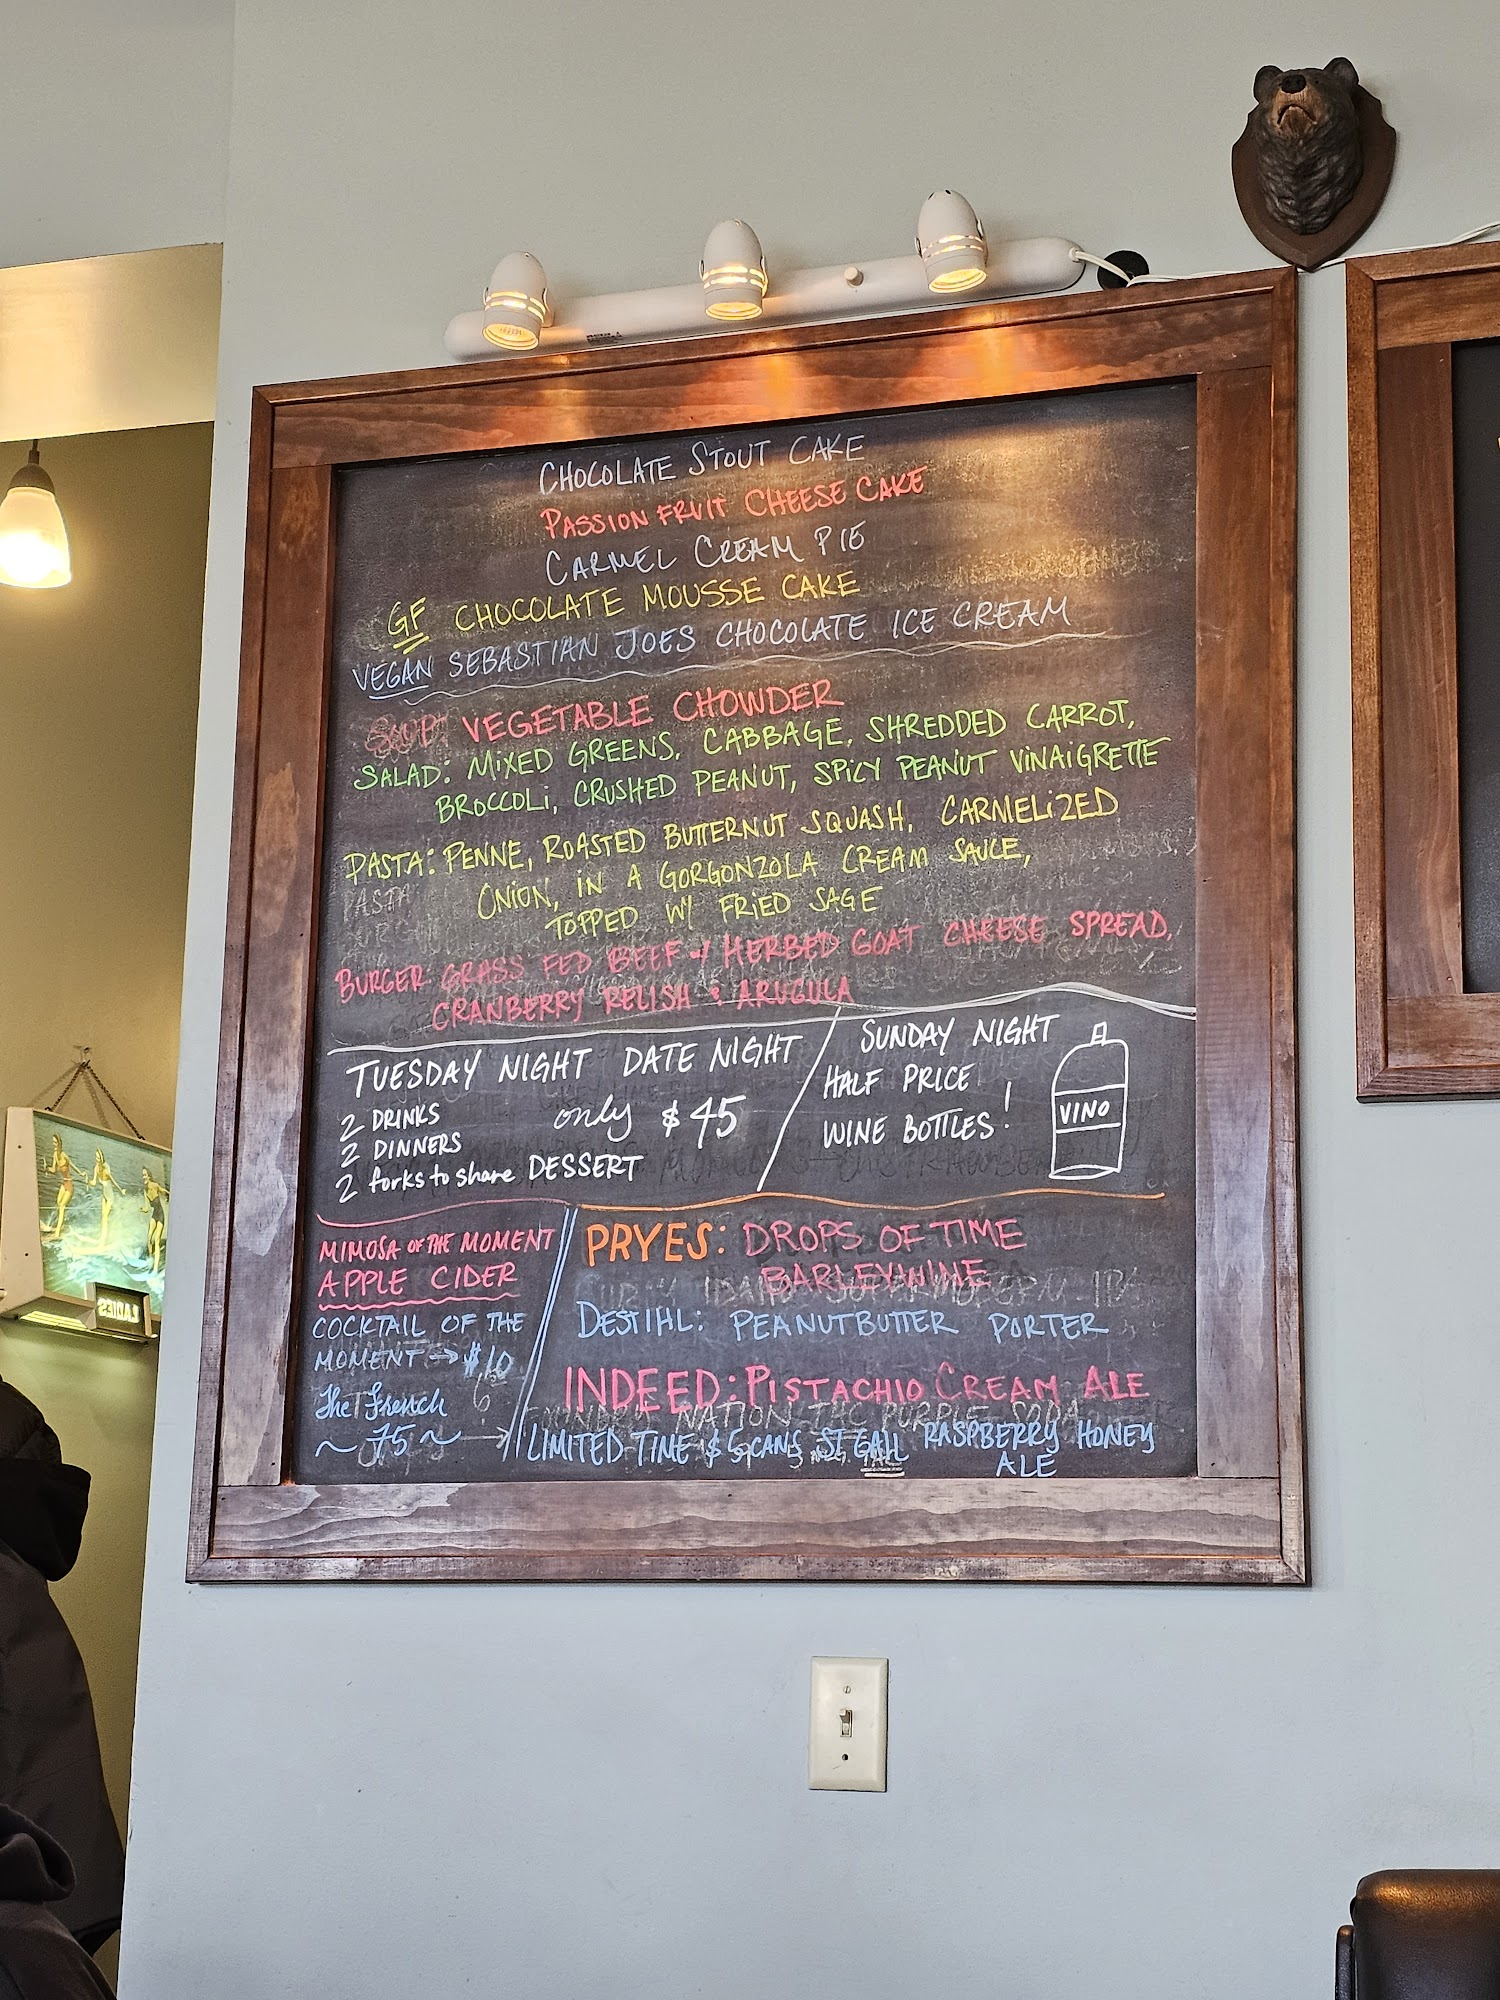 CHOCOLATE STOUT CAKE
PASSION FRUIT CHEESE CAKE
CARMEL CREAM PIE
GF CHOCOLATE MOUSSE CAKE
VEGAN SEBASTIAN JOES CHOCOLATE ICE CREAM
SOUP VEGETABLE CHOWDER
SALAD: MIXED GREENS, CABBAGE, SHREDDED CARROT,
BROCCOLI, CRUSHED PEANUT, SPICY PEANUT VINAIGRETTE
PASTA: PENNE, ROASTED BUTTERNUT SQUASH, CARMELIZED
ONION, IN A GORGONZOLA CREAM SAUCE,
TOPPED W/ FRIED SAGE
BURGER GRASS FED BEEF HERBED GOAT CHEESE SPREAD,
CRANBERRY RELISH & ARUGULA
TUESDAY NIGHT DATE NIGHT
2 DRINKS
2 DINNERS
2 forks to share DESSERT
only $45
SUNDAY NIGHT
HALF PRICE
WINE BOTTLES!
VINO
MIMOSA OF THE MOMENT
APPLE CIDER
COCKTAIL OF THE
MOMENT → $10
The French
~ 75 ~
PRYES: DROPS OF TIME
BARLEYWINE
DESTIHL: PEANUTBUTTER PORTER
INDEED: PISTACHIO CREAM ALE
LIMITED TIME $5 CANS ST GALL RASPBERRY HONEY
ALE
LADIES